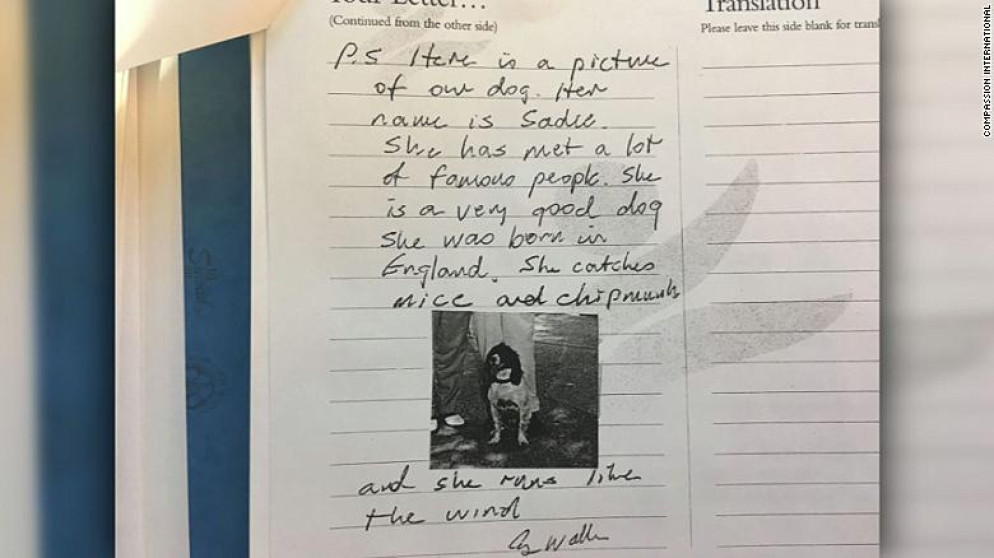 Your Letter...
(Continued from the other side)
P.S Here is a picture
of our dog. Her
name is Sadie.
She has met a lot
of famous people. She
is a very good dog
She was born in
England. She catches
mice and chipmunks
and she runs like
the wind
G. Walker
Translation
Please leave this side blank for
COMPASSION INTERNATIONAL